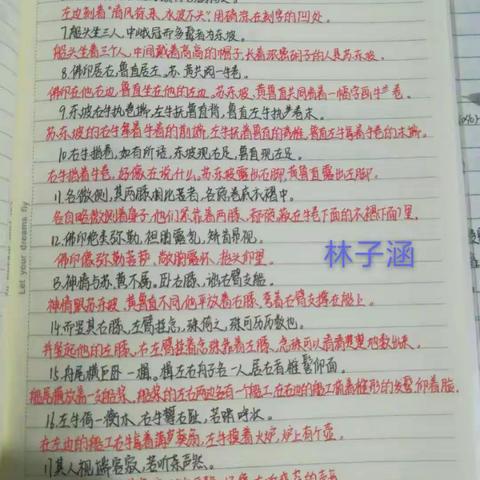 左边刻着“清风徐来,水波不兴”,用石青涂在刻字的凹处。
7.船头坐三人,中峨冠而多髯者为东坡。
船头坐着三个人,中间戴着高高的帽子,长着浓密胡子的人是苏东坡。
8.佛印居右,鲁直居左。苏、黄共阅一手卷。
佛印在他右边,鲁直坐在他的左边。苏东坡、黄鲁直共同看着一幅字画手卷。
9.东坡右手执卷端,左手抚鲁直背,鲁直左手执卷末
苏东坡的右手拿着手卷的前端,左手抚着鲁直的脊椎,鲁直左手拿着手卷的末端。
10.右手指卷,如有所语,东坡现右足,鲁直现左足。
右手指着手卷,好像在说什么,苏东坡露出右脚,黄鲁直露出左脚。
11.各微侧,其两膝相比者,各隐卷底衣褶中。
各自略微侧着身子,他们紧靠着的两膝,都隐藏在手卷下面的衣褶下面里。
12.佛印绝类弥勒,袒胸露乳,矫首昂视。
佛印像弥勒菩萨,敞胸露怀,抬头仰望。
13.神情与苏、黄不属。卧右膝,诎右臂支船。
神情跟苏东坡、黄鲁直不同,他平放着右膝,弯着右臂支撑在船上。
14.而竖其左膝,左臂挂念珠倚之,珠可历历数也。
并竖起他的左膝,右左臂挂着念珠靠着左膝,念珠可以清清楚楚地数出来。
15.舟尾横卧一楫。楫左右舟子各一人。居右者椎髻仰面。
船尾横放着一支船桨。船桨的左右两边各有一个船工,在右边的船工梳着椎形的发髻,仰着脸。
16.左手倚一衡木,右手攀右趾,若啸呼状。
在左边的船工右手拿着葫芦葵扇,左手摸着火炉,炉上有个壶。
17.其人视端容寂,若听茶声然。
林子涵
Let your dreams fly